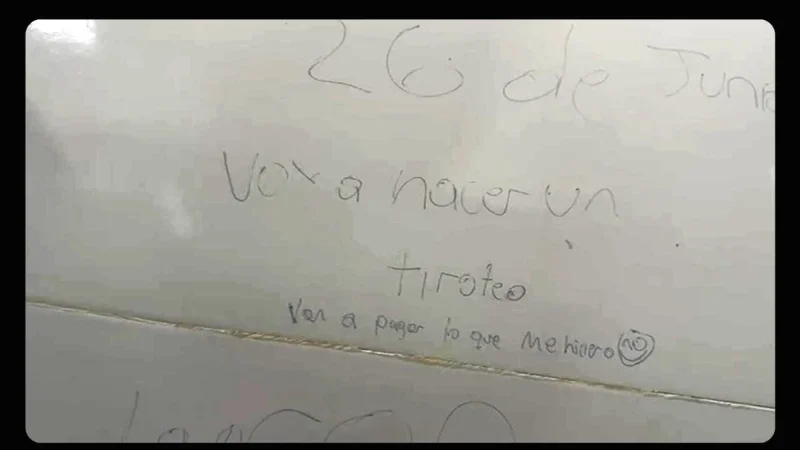 26 de Junio
Voy a hacer un
tiroteo
Van a pagar lo que me hiciero no